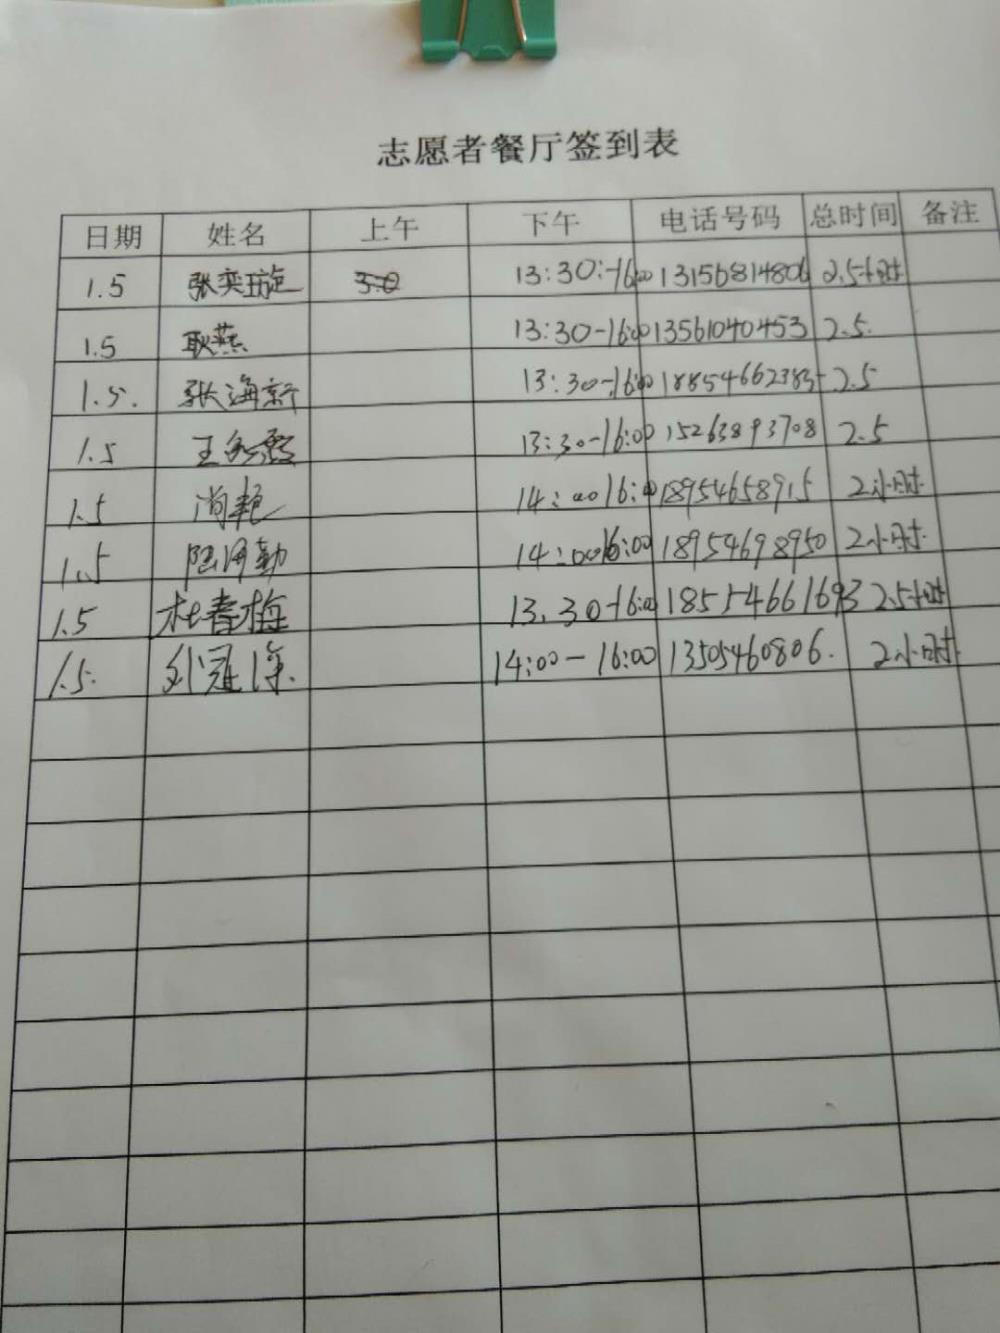 志愿者餐厅签到表
日期 姓名 上午 下午 电话号码 总时间 备注
1.5 张奕璇 13:30:-16:00 13156814806 2.5小时
1.5 耿燕 13:30-16:00 13561040453 2.5.
1.5. 张海新 13:30-16:00 18854662383 2.5
1.5 王 13:30-16:00 15263893708 2.5
1.5 尚艳 14:0016:00 18954658915 2小时
1.5 14:0016:00 18954698950 2小时
1.5 杜春梅 13.30-16:00 18554661693 2.5小时
1.5. 刘冠 14:00-16:00 13505460806. 2小时